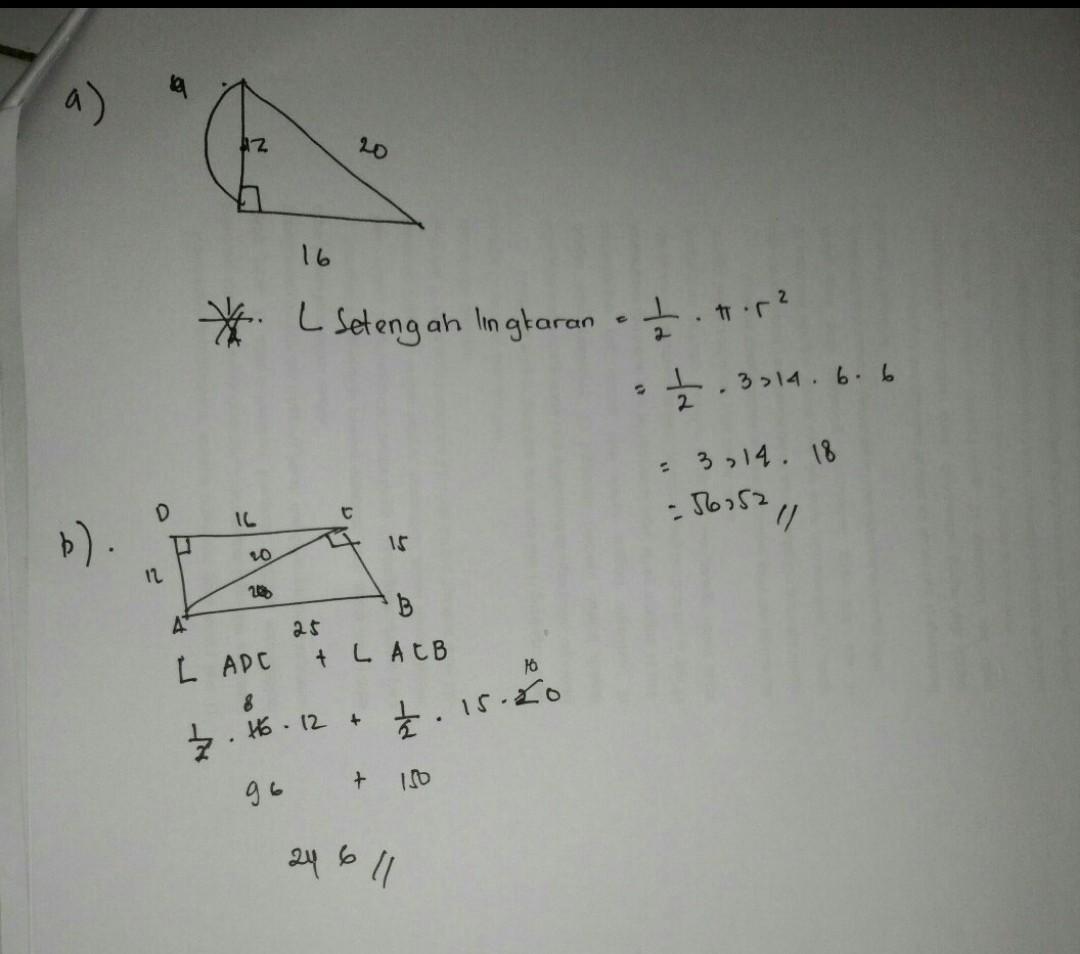 a)
12
20
16
L Setengah lingkaran = 1/2 . π . r²
= 1/2 . 3,14 . 6 . 6
= 3,14 . 18
= 56,52 //
b).
D 16 C
20 15
12
A 25 B
L ADC + L ACB
8 10
1/2 . 16 . 12 + 1/2 . 15 . 20
96 + 150
246 //